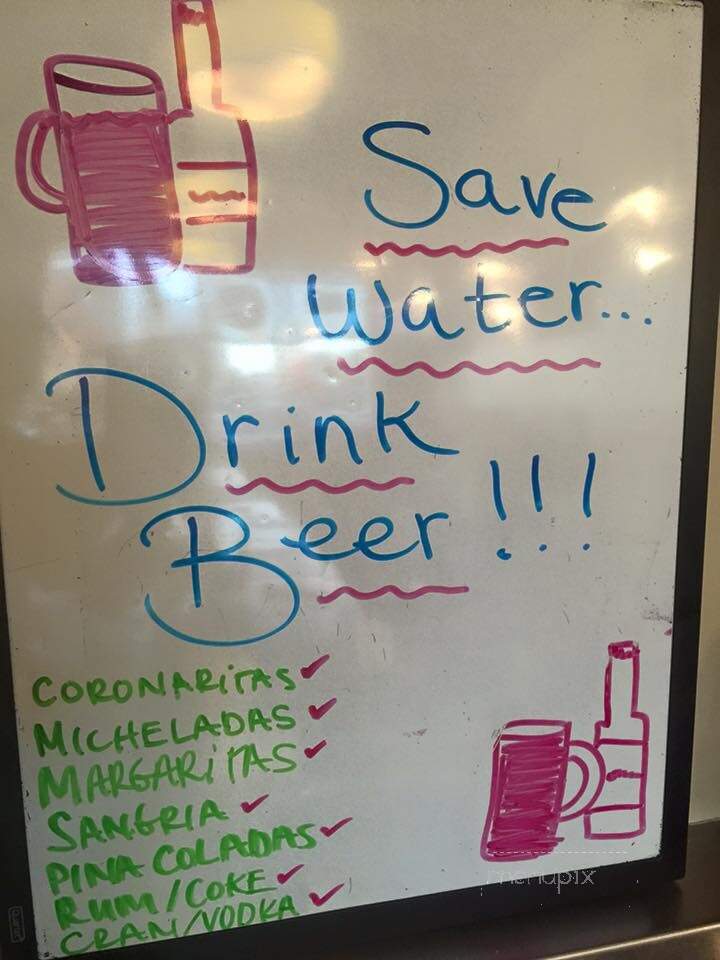 Save
Water...
Drink
Beer!!!
CORONARiTAS ✓
MICHELADAS ✓
MARGARiTAS ✓
SANGRIA ✓
PINA COLADAS ✓
RUM/COKE ✓
CRAN/VODKA ✓
menupix